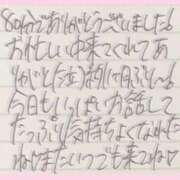 80分でありがとうございました!
お忙しい中来てくれてあ
りがとう
今日もいっぱいお話して
たっぷり気持ちよくなれた
ねまたいつでも来てね♡